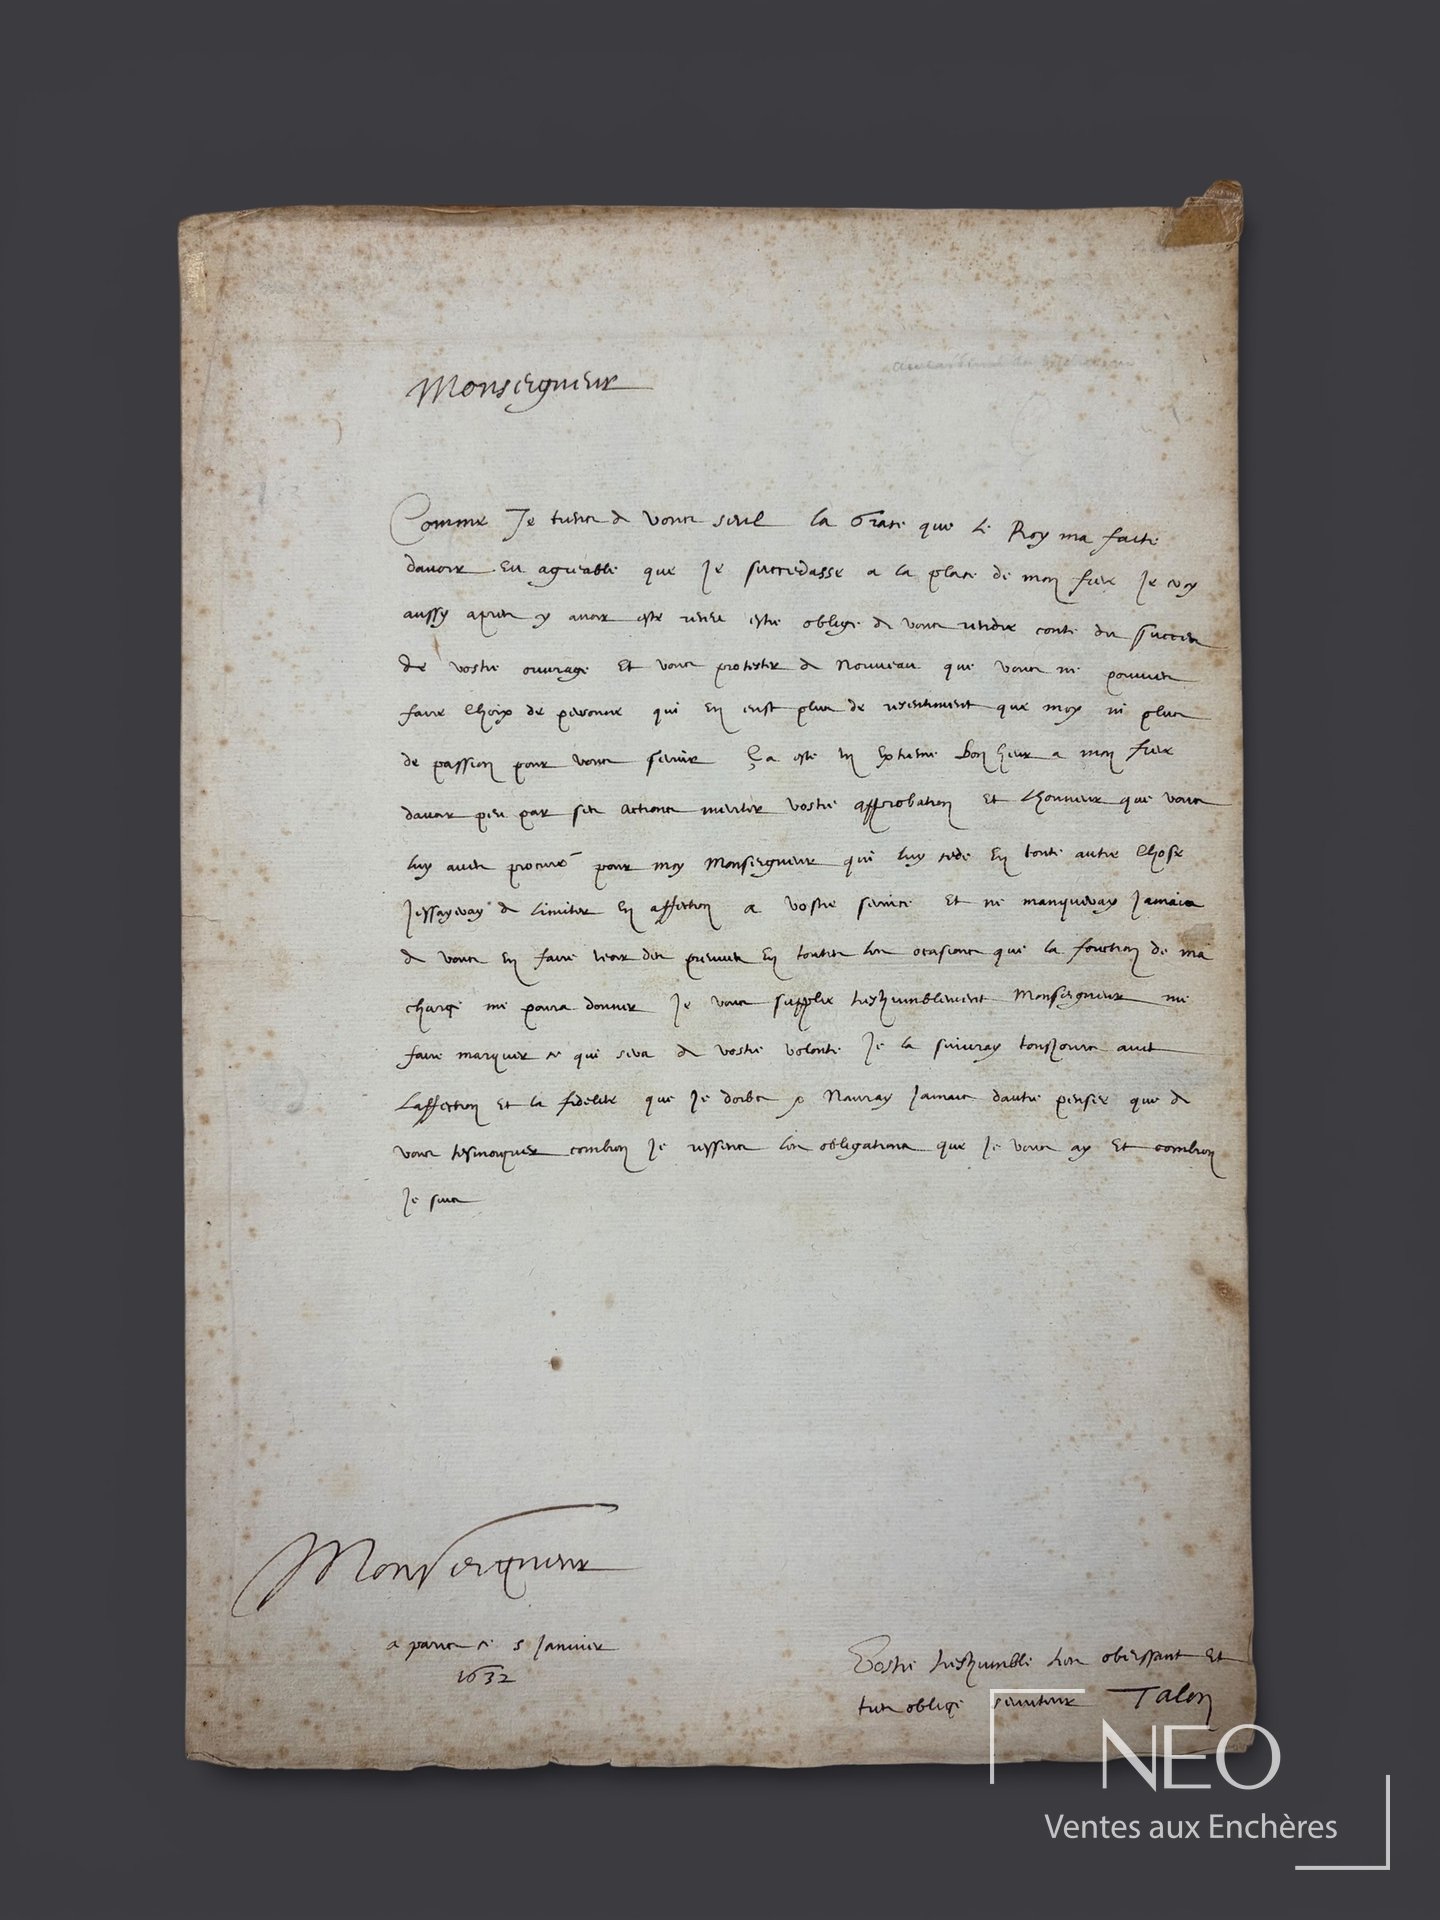 Monseigneur
Comme Je tiens de vous seul la Grace que le Roy ma faite
davoir Eu agreable que Je succedasse a la place de mon frere Je voy
aussy apres y avoir esté receu estre obligé de vous rendre conte du succes
de vostre ouvrage Et vous protester de Nouveau que vous ne pouuies
faire Choix de personne qui En eust plus de resentiment que moy ni plus
de passion pour vous seruir Ca esté un Extreme Bon heur a mon frere
dauoir peu par ses actions meriter vostre approbation Et Lhonneur que vous
luy aues procuré pour moy Monseigneur qui luy cede En toute autre Chose
Jessayeray de Limiter En affection a vostre seruice Et ne manqueray Jamais
de vous En faire voir des preuues En toutes les ocasions que la fonction de ma
charge me poura donner Je vous supplie treshumblement Monseigneur me
faire marquer ce qui sera de vostre volonté Je la suiuray tousjours auec
Laffection Et la fidelité que Je doibs Nauray Jamais dautre penser que de
vous tesmoigner combien Je ressens les obligations que Je vous ay Et combien
Je suis
Monseigneur
a paris ce 5 Januier
1632
Vostre treshumble tres obeissant Et
tres obligé seruiteur Talon
NEO
Ventes aux Enchères